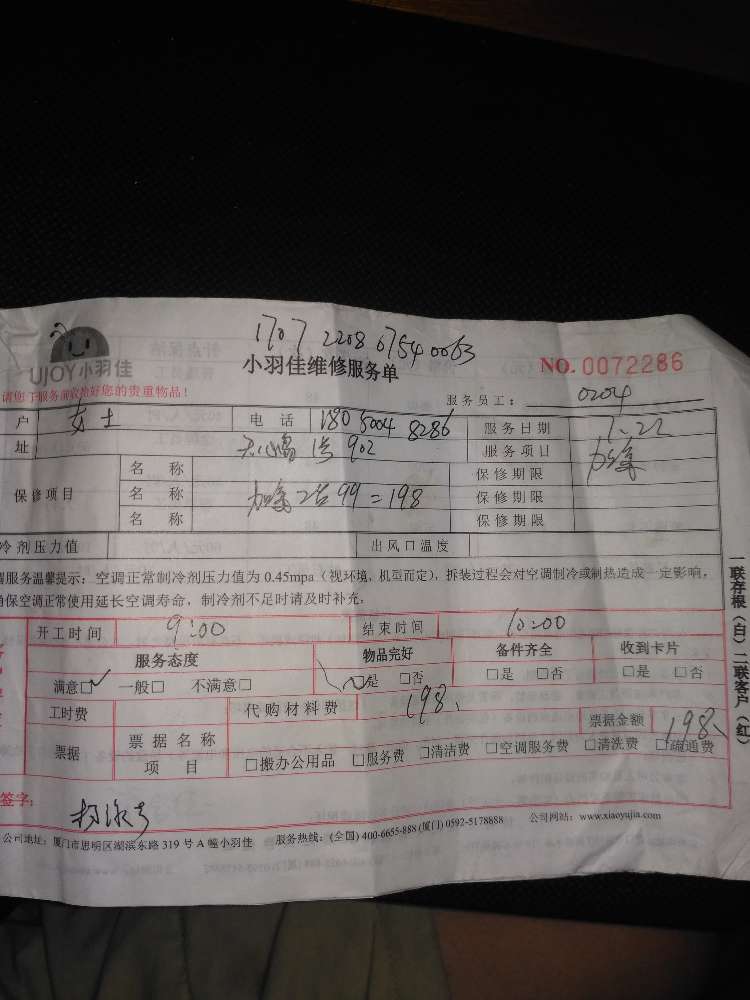 1707 2208 0754 0063
UJOY小羽佳
小羽佳维修服务单
NO. 0072286
请您于服务前收拾好您的贵重物品!
服务员工: 0204
户 女士 电 话 180 5004 8286 服务日期 1.22
址 902 服务项目
保修项目
名 称 保修期限
名 称 2台 99=198 保修期限
名 称 保修期限
冷剂压力值 出风口温度
服务温馨提示:空调正常制冷剂压力值为0.45mpa(视环境、机型而定),拆装过程会对空调制冷或制热造成一定影响,
确保空调正常使用延长空调寿命,制冷剂不足时请及时补充。
开工时间 9:00 结束时间 10:00
服务态度 物品完好 备件齐全 收到卡片
满意□ 一般□ 不满意□ 是 □否 □是 □否 □是 □否
工时费 代购材料费 198、
票据 票据名称 票据金额 198、
项 目 □搬办公用品 □服务费 □清洁费 □空调服务费 □清洗费 □疏通费
签字:
公司地址:厦门市思明区湖滨东路319号A幢小羽佳 服务热线:(全国)400-6655-888(厦门)0592-5178888 公司网站:www.xiaoyujia.com
一联存根(白)二联客户(红)